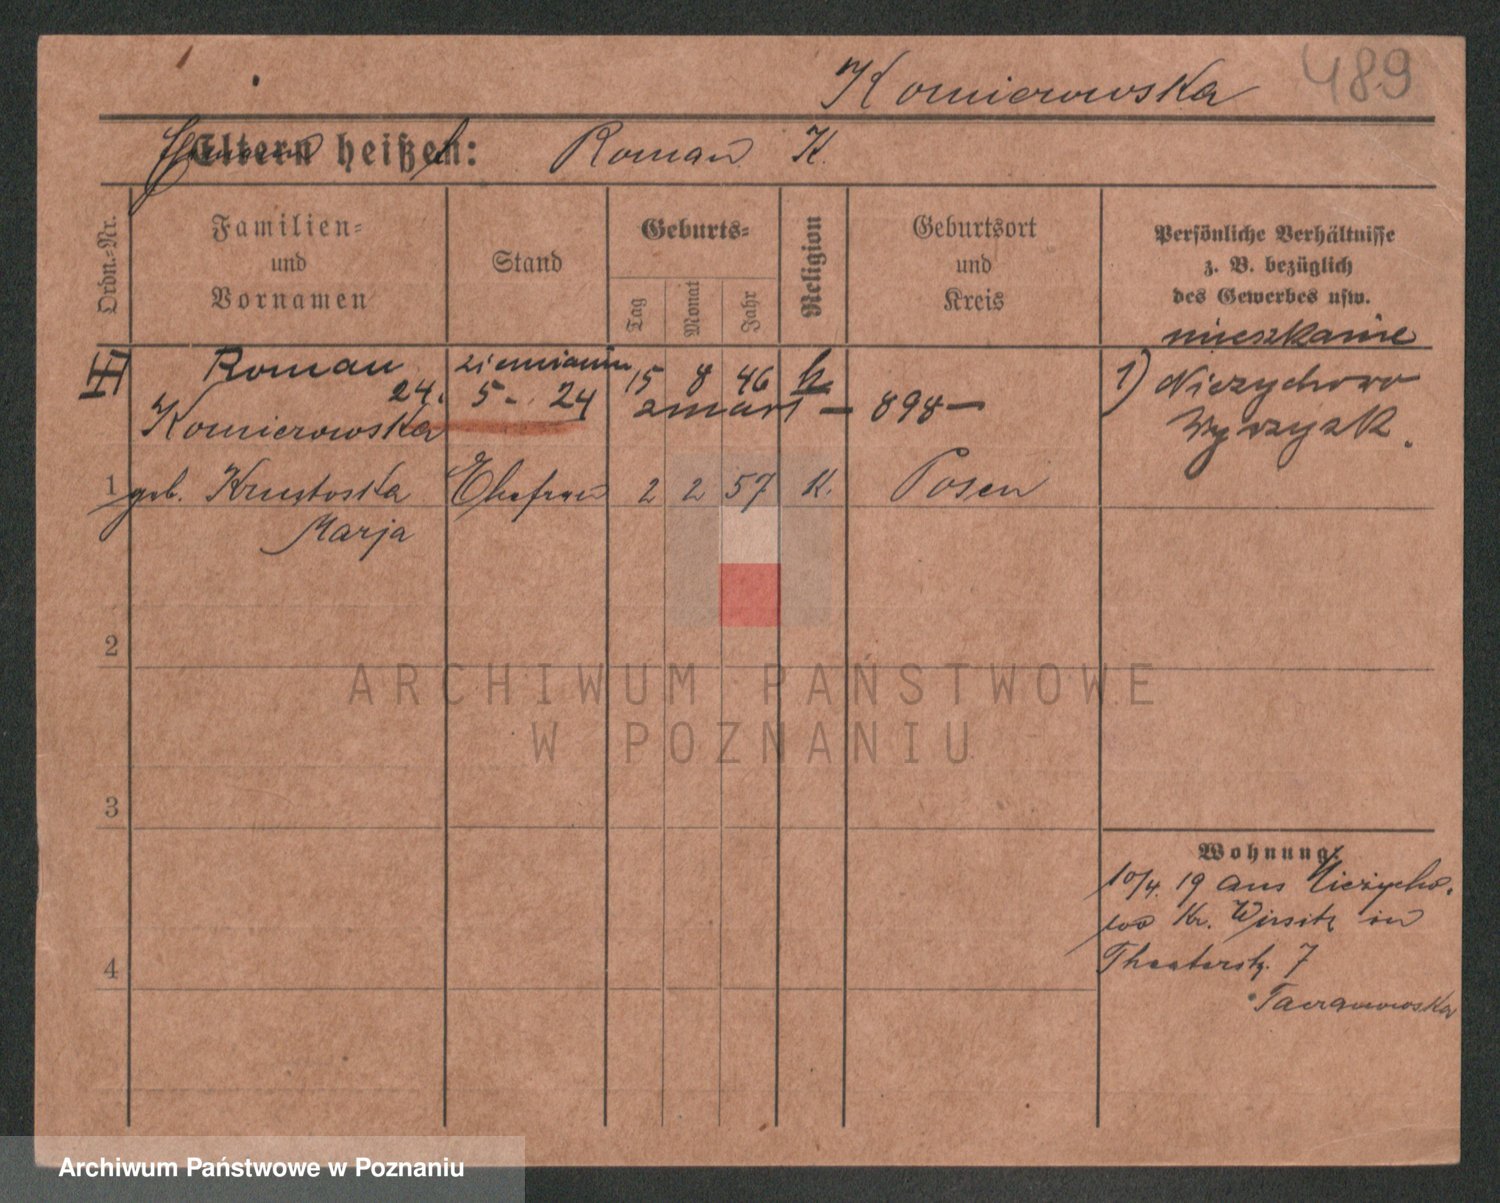 Komierowska 489
Eltern heißen: Roman K.
Ordn.-Nr.
Familien-
und
Vornamen
Stand
Geburts-
Tag
Monat
Jahr
Religion
Geburtsort
und
Kreis
Persönliche Verhältnisse
z. B. bezüglich
des Gewerbes usw.
mieszkanie
Roman ziemianin 15 8 46 k. 1) Niezychowo
24. 5 - 24 zmarł - 898 - Wyrzysk.
Komierowska
1 geb. Krustoska Ehefrau 2 2 57 K. Posen
Marja
2
3
4
Wohnung:
10/4. 19 aus Niezycho-
wo Kr. Wirsitz in
Theaterstr. 7
ARCHIWUM PAŃSTWOWE
W POZNANIU
Archiwum Państwowe w Poznaniu